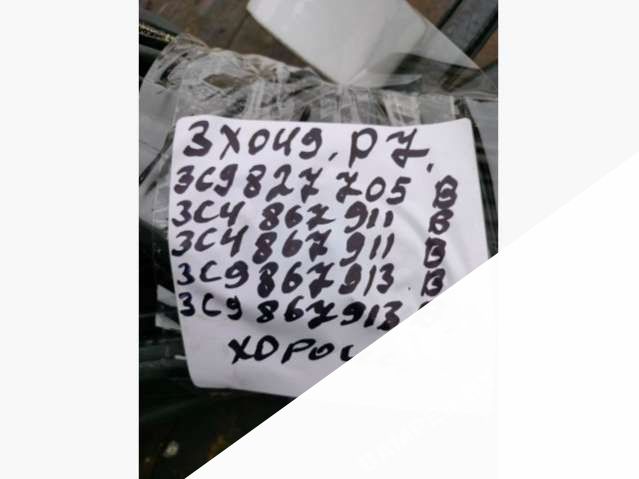 3X049, P7,
3C9827705 B
3C4 867 911 B
3C4 867 911 B
3C9867913 B
3C9 867913